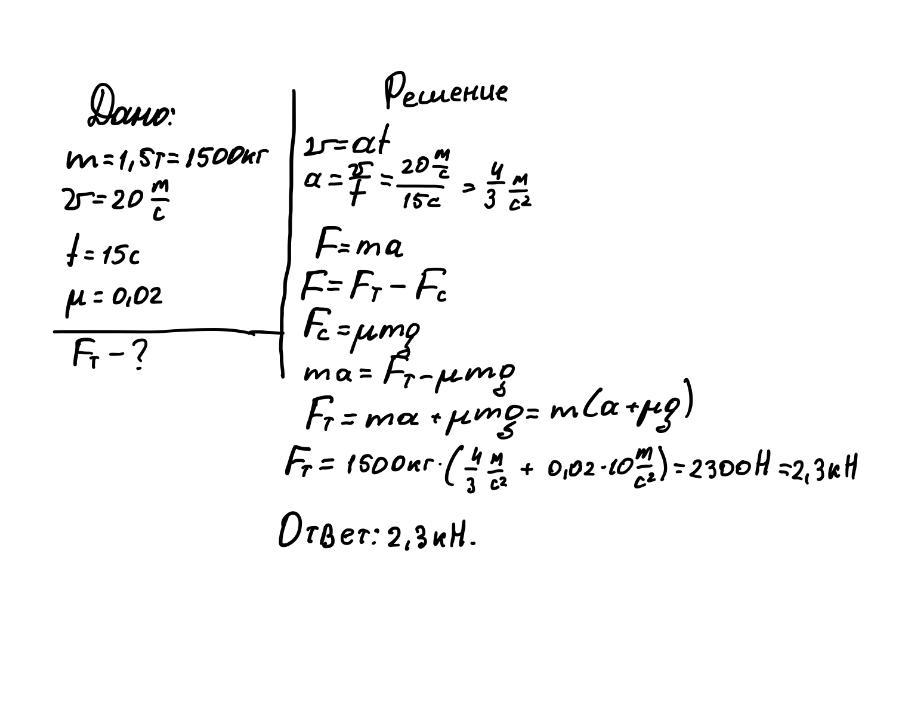 Дано:
m = 1,5т = 1500кг
v = 20 м/с
t = 15с
μ = 0,02
Fт - ?
Решение
v = at
a = v/t = 20 м/с / 15с = 4/3 м/с²
F = ma
F = Fт - Fс
Fс = μmg
ma = Fт - μmg
Fт = ma + μmg = m(a + μg)
Fт = 1500кг · (4/3 м/с² + 0,02 · 10 м/с²) = 2300Н = 2,3кН
Ответ: 2,3кН.